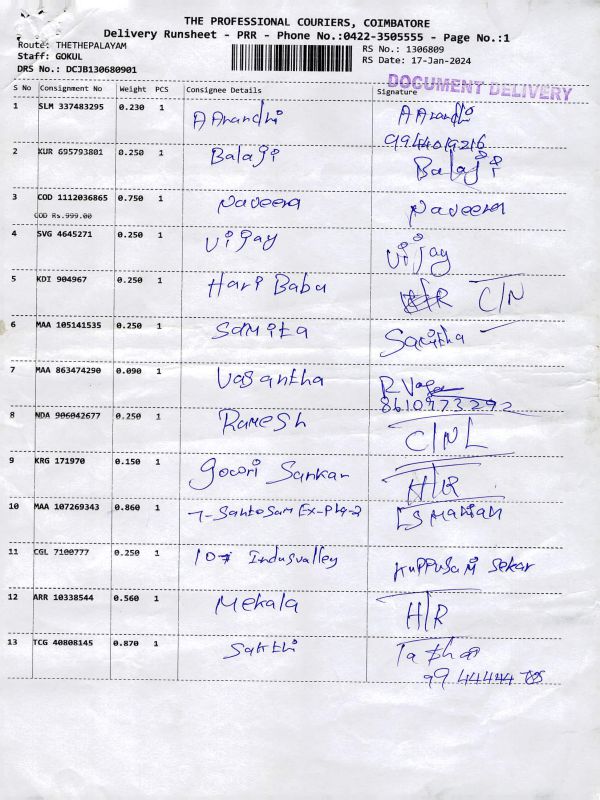 THE PROFESSIONAL COURIERS, COIMBATORE
Delivery Runsheet - PRR - Phone No.:0422-3505555 - Page No.:1
Route: THETHEPALAYAM
RS No.: 1306809
Staff: GOKUL
RS Date: 17-Jan-2024
DRS No.: DCJB130680901
DOCUMENT DELIVERY
S No Consignment No Weight PCS Consignee Details Signature
1 SLM 337483295 0.230 1 A Anandhi A Anandhi
9944019216
2 KUR 695793801 0.250 1 Balaji Balaji
3 COD 1112036865 0.750 1 Naveena Naveena
COD Rs.999.00
4 SVG 4645271 0.250 1 Vijay Vijay
5 KDI 904967 0.250 1 Hari Babu C/N
6 MAA 105141535 0.250 1 Samita Saritha
7 MAA 863474290 0.090 1 Vasantha
8610973292
8 NDA 906042677 0.250 1 Ramesh C/NL
9 KRG 171970 0.150 1 Gowri Sankar H/R
10 MAA 107269343 0.860 1
11 CGL 7100777 0.250 1 Indusvalley Kuppusami Sekar
12 ARR 10338544 0.560 1 Mekala H/R
13 TCG 40808145 0.870 1 Sakthi